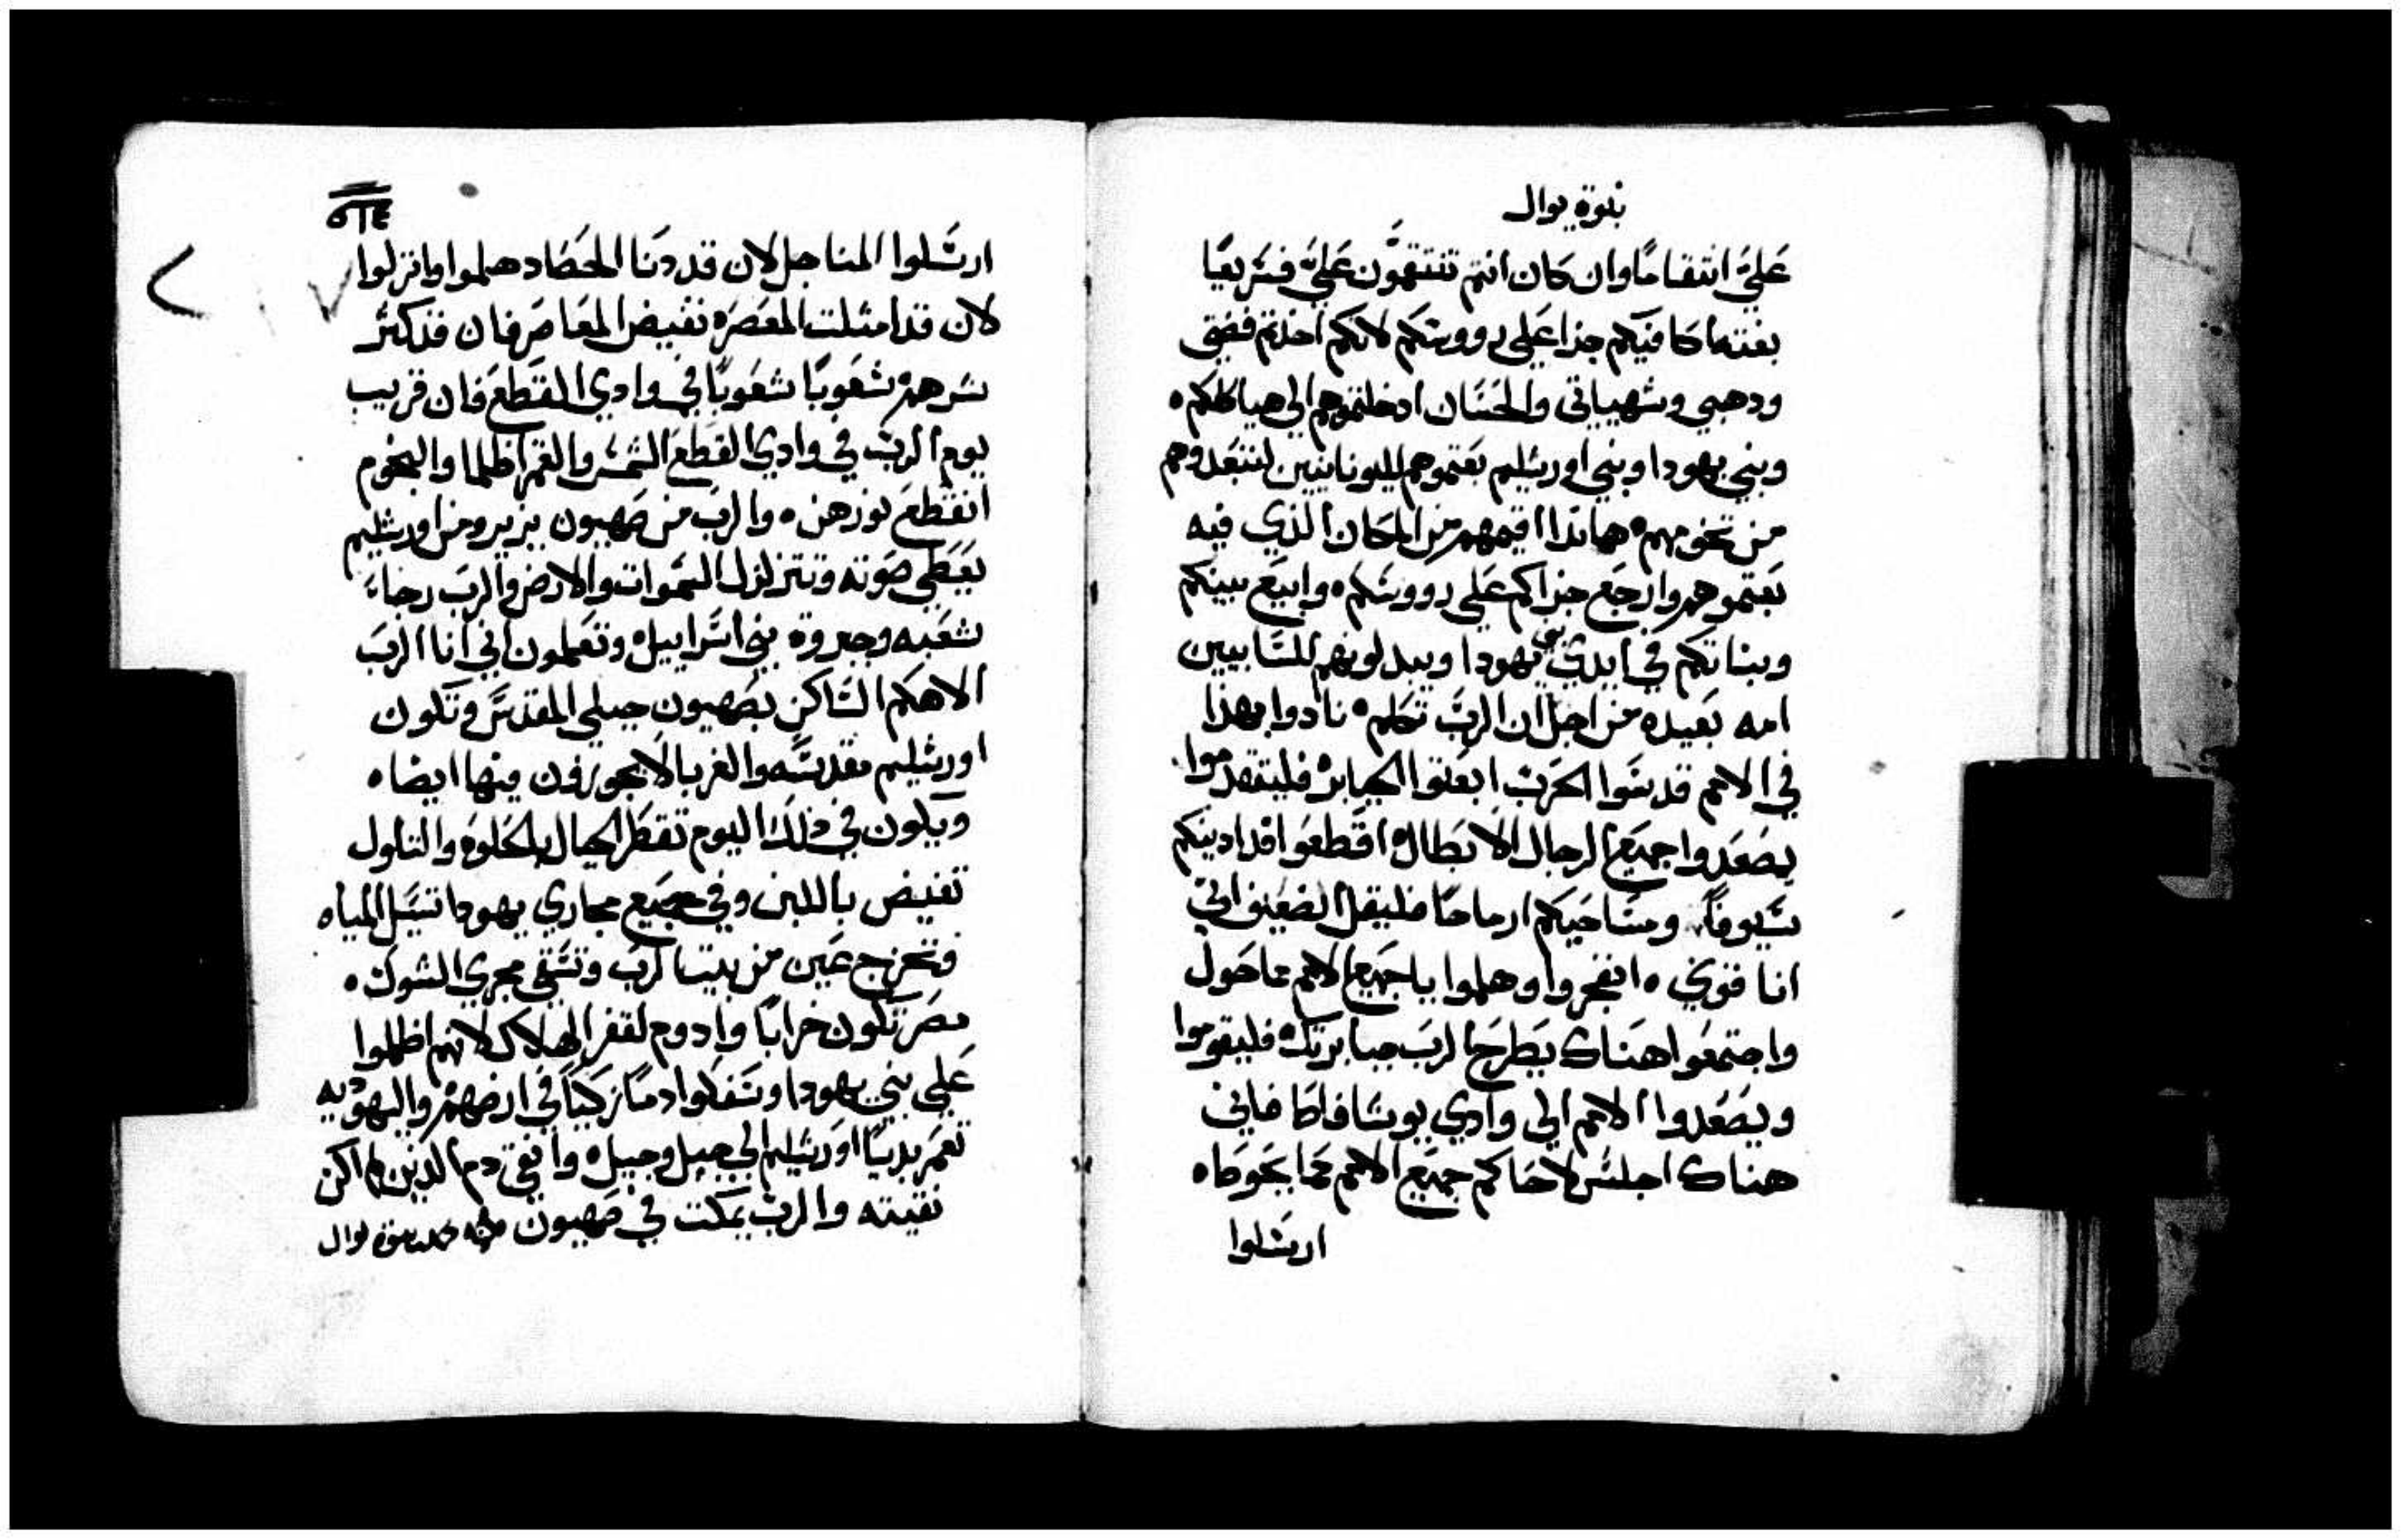 نبوة يوال
عليَّ انتقامًا وان كان انتم تنتقمون عليّ فسريعًا
بغتة اكافيكم جزا علي رووسكم لانكم اخذتم فضتي
ودهبي وشهياتي والحسان ادخلتموهم الي هياكلكم ه
وبني يهودا وبني اورشليم بعتموهم لليونانيين لتبعدوهم
من تخومهم ه هاندا اقيمهم من المكان الذي فيه
بعتموهم وارجع جزاكم علي رووسكم ه وابيع بنيكم
وبناتكم في ايدي بني يهودا ويبدلونهم للسابيين
امه بعيده من اجل ان الرب تكلم ه نادوا بهذا
في الامم قدسوا الحرب ابعتوا الجبابره فليتقدموا
يصعدوا جميع الرجال الابطال ه اقطعوا افدادينكم
سيوفاً ومساحيكم ارماحًا فليقل الضعيف اني
انا قوي ه انفجروا وهلموا يا جميع الامم مما حول
واجتمعوا هناك يطرح الرب جبابرتك ه فليقوموا
ويصعدوا الامم الي وادي يوسافاط فاني
هناك اجلس لاحاكم جميع الامم مما بحوطه
ارسلوا
٥١٤
ارسلوا المناجل لان قد دنا الحصاد هلموا وانزلوا
لان قد امتلت المعصره تفيض المعاصر فان قد كثر
شرهم شعوبًا شعوبًا في وادي القطع فان قريب
يوم الرب في وادي القطع الشمس والقمر اظلما والنجوم
انقطع نورهن ه والرب من صهيون يزير ومن اورشليم
يعطي صوته وتتزلزل السموات والارض والرب رجاء
شعبه وجبروة بني اسراييل ه وتعلمون اني انا الرب
الاهكم الساكن بصهيون جبلي المقدس وتكون
اورشليم مقدسه والغربا لا يجوزون فيها ايضاه
ويكون في ذلك اليوم تقطر الجبال بالحلوه والتلول
تفيض باللبن وفي جميع مجاري يهودا تسيل المياه
وتخرج عين من بيت الرب وتسقي مجري الشوك ه
مصر تكون خرابًا وادوم لقفر الهلاك لانهم اظلموا
علي بني يهودا وسفكوا دمًا زكيًا في ارضهم واليهوديه
تعمر بديًا اورشليم الي جيل وجيل ه وانقي دم الذين لم اكن
نقيته والرب يمكت في صهيون نبوة يوال